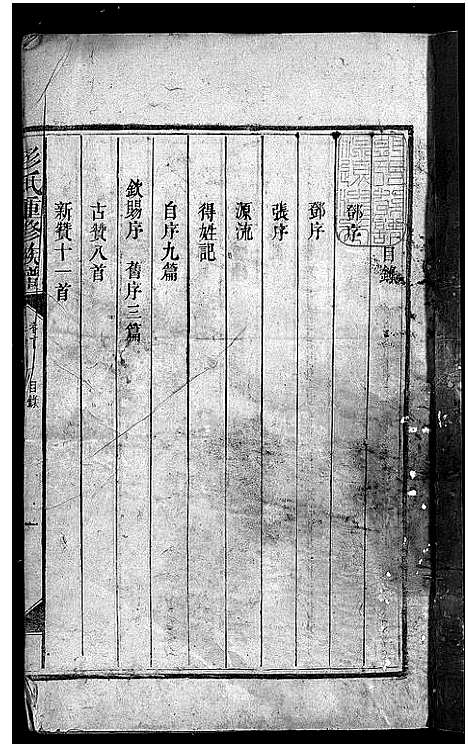 目錄
鄧序
鄧序
張序
源流
得姓記
自序九篇
欽賜序 舊序三篇
古贊八首
新贊十一首
彭氏重修族譜
目錄